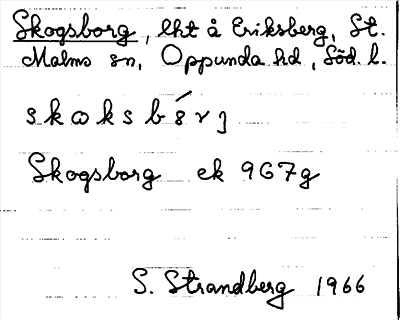 Skogsborg, lht å Eriksberg, St.
Malms sn, Oppunda hd, Söd. l.
Skogsborg ek 967g
S. Strandberg 1966